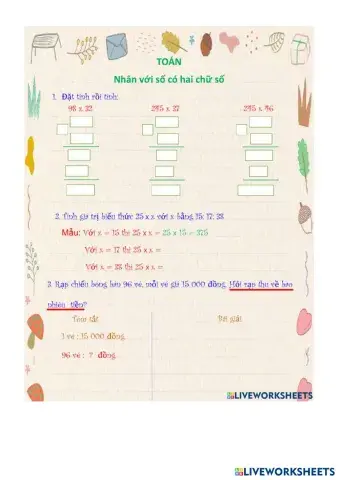 TOÁN
Nhân với số có hai chữ số
1. Đặt tính rồi tính:
98 x 32 245 x 37 245 x 46
2. Tính giá trị biểu thức 25 x x với x bằng 15; 17; 28
Mẫu: Với x = 15 thì 25 x x = 25 x 15 = 375
Với x = 17 thì 25 x x =
Với x = 28 thì 25 x x =
3. Rạp chiếu bóng bán 96 vé, mỗi vé giá 15 000 đồng. Hỏi rạp thu về bao
nhiêu tiền?
Tóm tắt Bài giải
1 vé : 15 000 đồng
96 vé : ? đồng
LIVEWORKSHEETS
LIVEWORKSHEETS